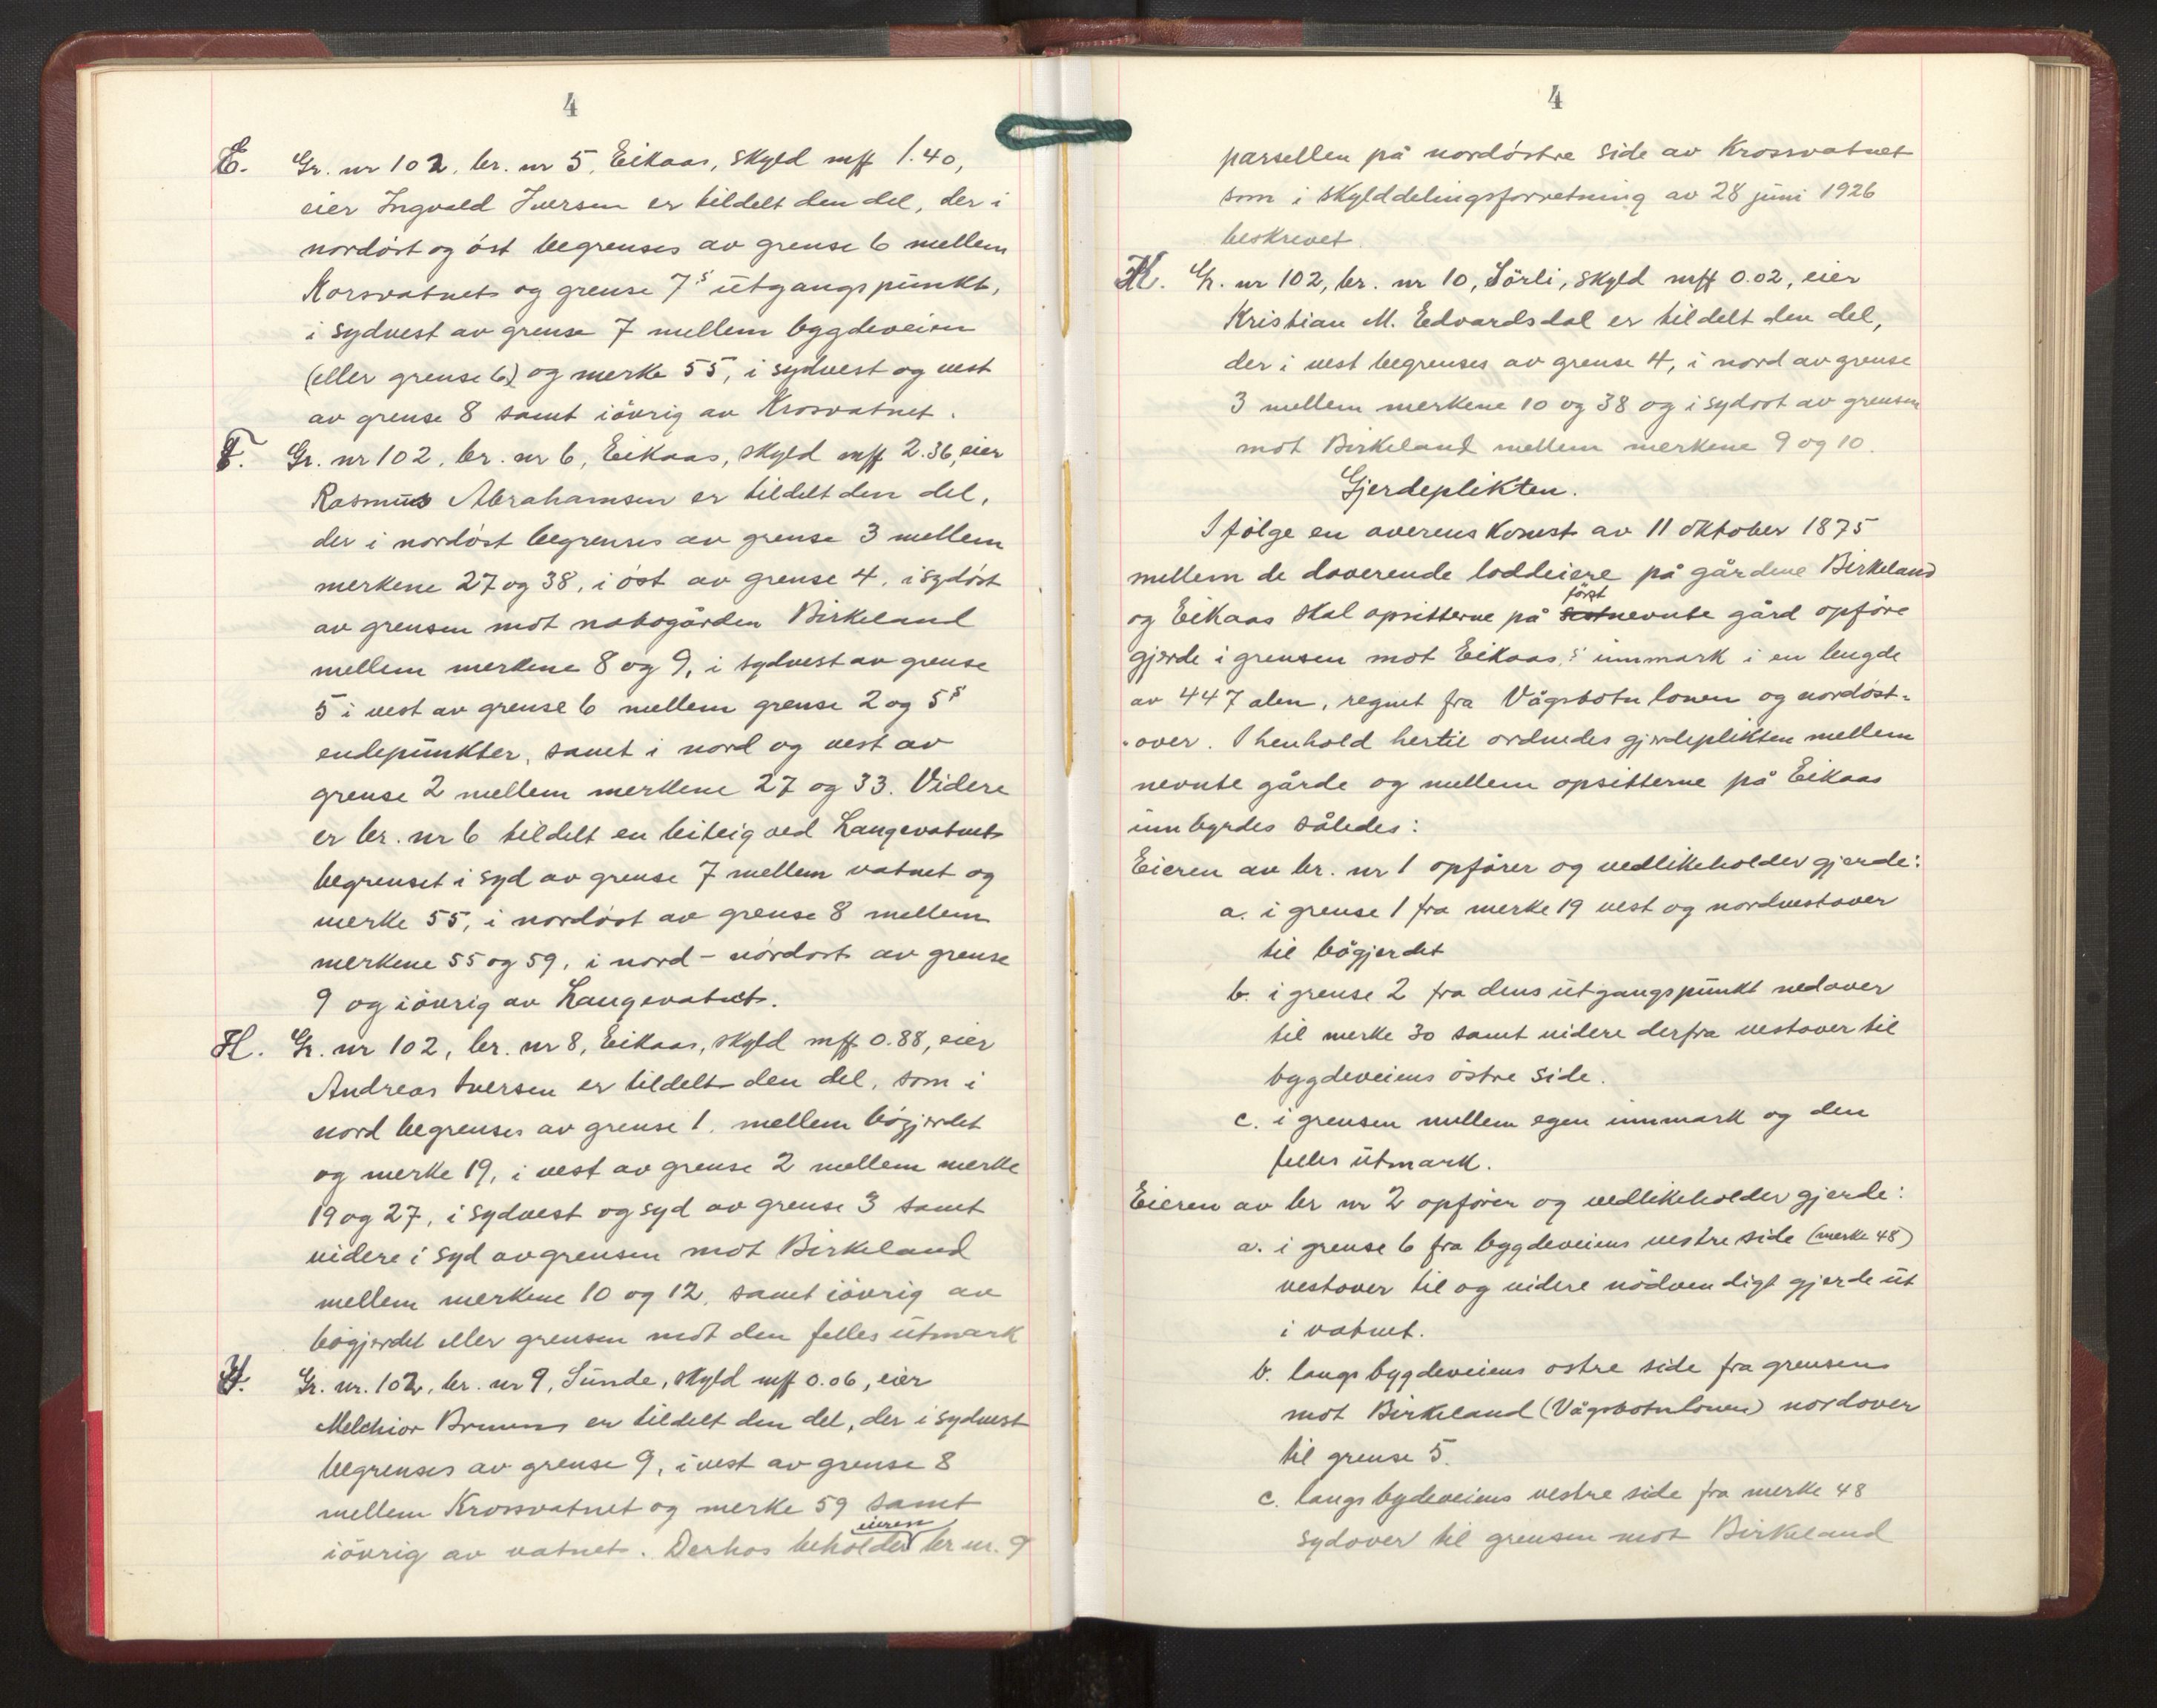 4
E. Gr. nr 102, br. nr 5, Eikaas, skyld mȝ 1.40,
eier Ingvald Iversen er tildelt den del, der i
nordöst og öst begrenses av grense 6 mellem
Korsvatnet og grense 7s utgangspunkt,
i sydvest av grense 7 mellem bygdeveien
(eller grense 6) og merke 55, i sydvest og vest
av grense 8 samt iövrig av Krosvatnet.
F. Gr. nr 102, br. nr 6, Eikaas, skyld mȝ 2.36, eier
Rasmus Abrahamsen er tildelt den del,
der i nordöst begrenses av grense 3 mellem
merkene 27 og 38, i öst av grense 4, i sydöst
av grensen mot nabogården Birkeland
mellem merkene 8 og 9, i sydvest av grense
5 i vest av grense 6 mellem grense 2 og 5s
endepunkter, samt i nord og vest av
grense 2 mellem merkene 27 og 33. Videre
er br. nr 6 tildelt en teig ved Langevatnet
begrenset i syd av grense 7 mellem vatnet og
merke 55, i nordöst av grense 8 mellem
merkene 55 og 59, i nord - nordost av grense
9 og iövrig av Langevatnet.
H. Gr. nr 102, br. nr 8, Eikaas, skyld mȝ 0.88, eier
Andreas Iversen er tildelt den del, som i
nord begrenses av grense 1, mellem bögjerdet
og merke 19, i vest av grense 2 mellem merke
19 og 27, i sydvest og syd av grense 3 samt
videre i syd av grensen mot Birkeland
mellem merkene 10 og 12, samt iövrig av
bögjerdet eller grensen mot den felles utmark
J. Gr. nr. 102, br. nr 9, Sunde, skyld mȝ 0.06, eier
Melchior Bruuns er tildelt den del, der i sydvest
begrenses av grense 9, i vest av grense 8
mellem Krossvatnet og merke 59 samt
iövrig av vatnet. Derhos beholder eieren br nr. 9
4
parsellen på nordöstre side av Krossvatnet
som i skylddelingsforretning av 28 juni 1926
beskrevet.
K. Gr. nr 102, br. nr 10, Sörli, skyld mȝ 0.02, eier
Kristian M. Edvardsdal er tildelt den del,
der i vest begrenses av grense 4, i nord av grense
3 mellem merkene 10 og 38 og i sydost av grensen
mot Birkeland mellem merkene 9 og 10.
Gjerdeplikten.
I fölge en overenskomst av 11 oktober 1875
mellem de daverende loddeiere på gårdene Birkeland
og Eikaas skal opsitterne på sist först nevnte gård opföre
gjerde i grensen mot Eikaas,s innmark i en lengde
av 447 alen, regnet fra Vågsbotnlonen og nordöst=
=over. I henhold hertil ordnedes gjerdeplikten mellem
nevnte gårde og mellem opsitterne på Eikaas
innbyrdes således:
Eieren av br. nr 1 opförer og vedlikeholder gjerde:
a. i grense 1 fra merke 19 vest og nordvestover
til bögjerdet
b. i grense 2 fra dens utgangspunkt nedover
til merke 30 samt videre derfra vestover til
bygdeveiens östre side.
c. i grensen mellem egen innmark og den
felles utmark.
Eieren av br nr 2 opförer og vedlikeholder gjerde:
a. i grense 6 fra bygdeveiens vestre side (merke 48)
vestover til og videre nödvendigt gjerde ut
i vatnet.
b. langs bygdeveiens ostre side fra grensen
mot Birkeland (Vågsbotnlonen) nordover
til grense 5.
c. langs bydeveiens vestre side fra merke 48
sydover til grensen mot Birkeland